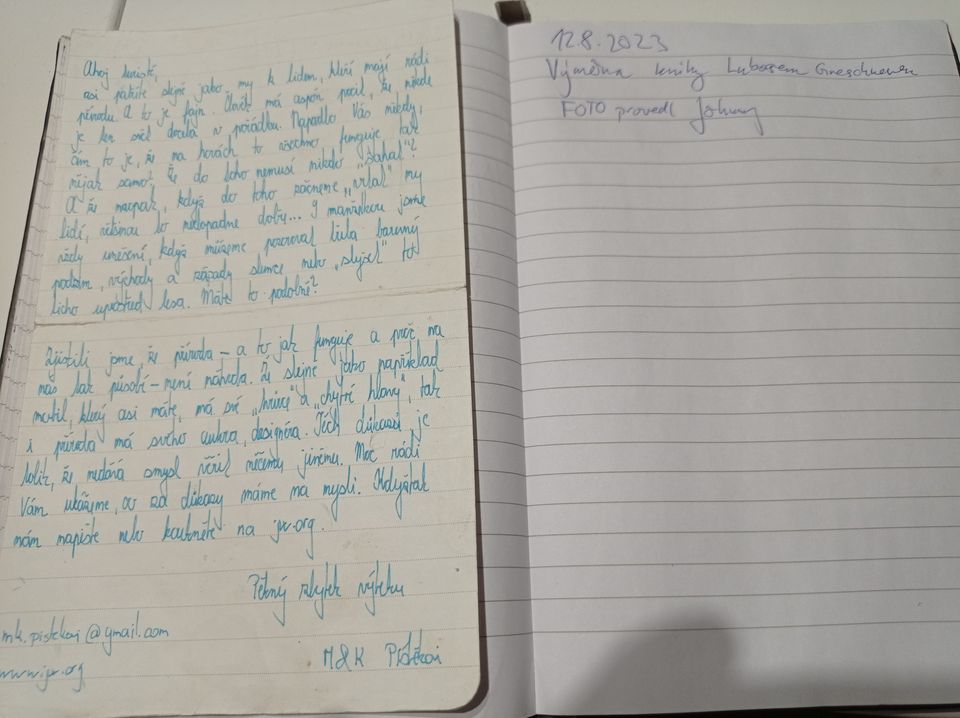 Ahoj turisté,
asi patříte stejně jako my k lidem, kteří mají rádi
přírodu. A to je fajn. Člověk má aspoň pocit, že někde
je ten svět docela v pořádku. Napadlo Vás někdy,
čím to je, že na horách to všechno funguje tak
nějak samo? Že do toho nemusí nikdo "šahat"?
A že naopak, když do toho začneme "vrtat" my
lidi, většinou to nedopadne dobře... S manželkou jsme
vždy unešení, když můžeme pozorovat třeba barevný
podzim, východy a západy slunce nebo "slyšet" to
ticho uprostřed lesa. Máte to podobně?
Zjistili jsme, že příroda - a to jak funguje a proč na
nás tak působí - není náhoda. Že stejně jako například
mobil, který asi máte, má své "tvůrce" a "chytré hlavy", tak
i příroda má svého autora, designéra. Těch důkazů je
tolik, že nedává smysl věřit něčemu jinému. Moc rádi
Vám ukážeme, co za důkazy máme na mysli. Kdyžtak
nám napište nebo koukněte na jw.org.
Pěkný zbytek výšlapu
M&K
mk.pistekovi@gmail.com
www.jw.org
12.8.2023
Výměna knihy Lubosem
FOTO provedl Johnny